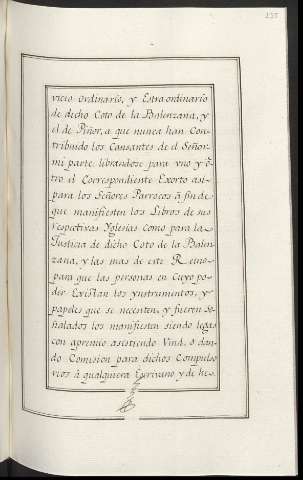 255
vicio ordinario, y Estraordinario
de dicho Coto de la Balenzana, y
el de Piñor, a que nunca han Con-
tribuido los Causantes de el Señor
mi parte librandose para vno y ô-
tro el Correspondiente Exorto asi
para los Señores Parrocos â fin de
que manifiesten los Libros de sus
respectivas Yglesias como para la
Justicia de dicho Coto de la Balen-
zana, y las mas de este Reino
para que las personas en Cuyo po-
der Existan los ynstrumentos, y
papeles que se necesiten, y fueren Se-
ñalados los manifiesten siendo legas
con apremio asistiendo Vmd. o dan-
do Comision para dichos Compulso-
rios â qualquiera Escrivano y de he-